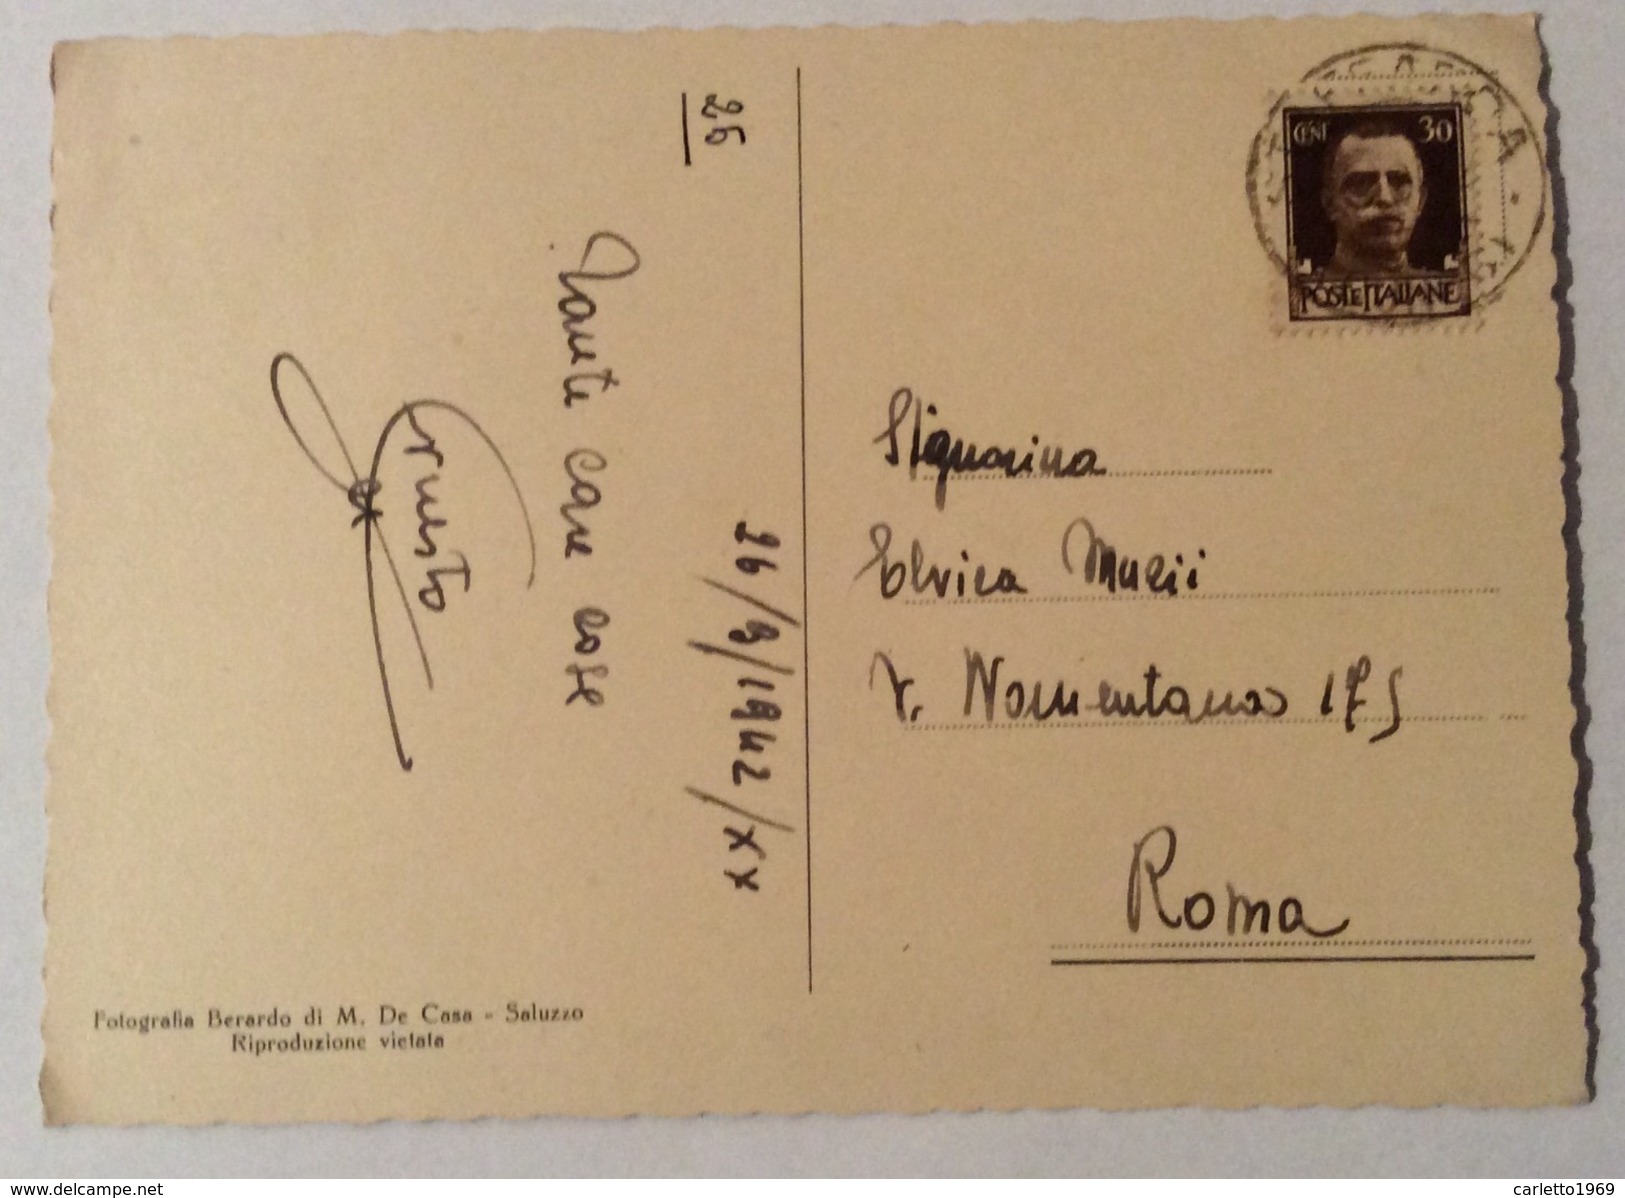 26
26/9/1942/XX
Tante care cose
Ernesto
Fotografia Berardo di M. De Casa - Saluzzo
Riproduzione vietata
CENT 30
POSTE ITALIANE
Signorina
Elvira Muzii
V. Nomentana 175
Roma
www.delcampe.net
carletto1969